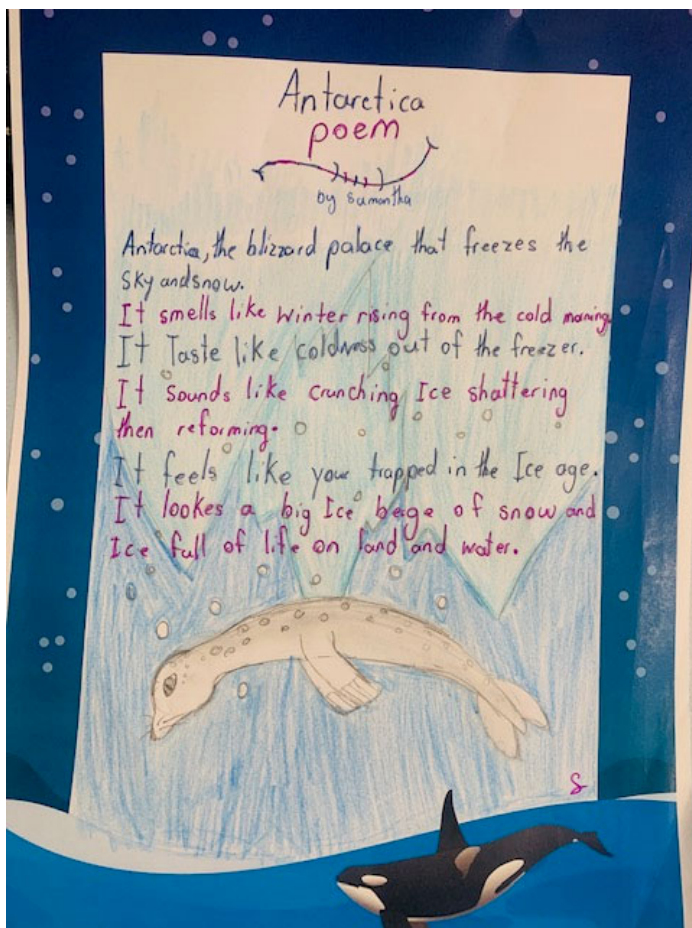 Antarctica
poem
by Samantha
Antarctica, the blizzard palace that freezes the
sky and snow.
It smells like winter rising from the cold morning
It Taste like coldness out of the freezer.
It sounds like crunching Ice shattering
then reforming.
It feels like your trapped in the Ice age.
It lookes a big Ice berge of snow and
Ice full of life on land and water.
S